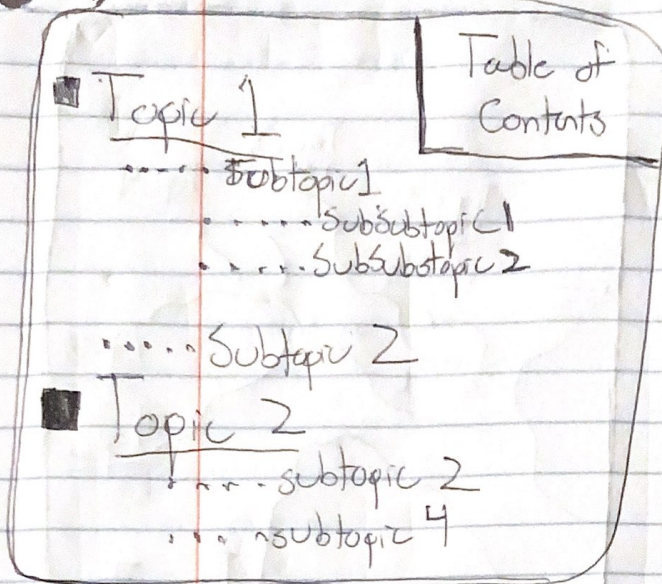 Table of
Contents
Topic 1
..... Subtopic1
..... SubSubtopic1
..... SubSubstopic2
..... Subtopic 2
Topic 2
.... subtopic 2
.... subtopic 4